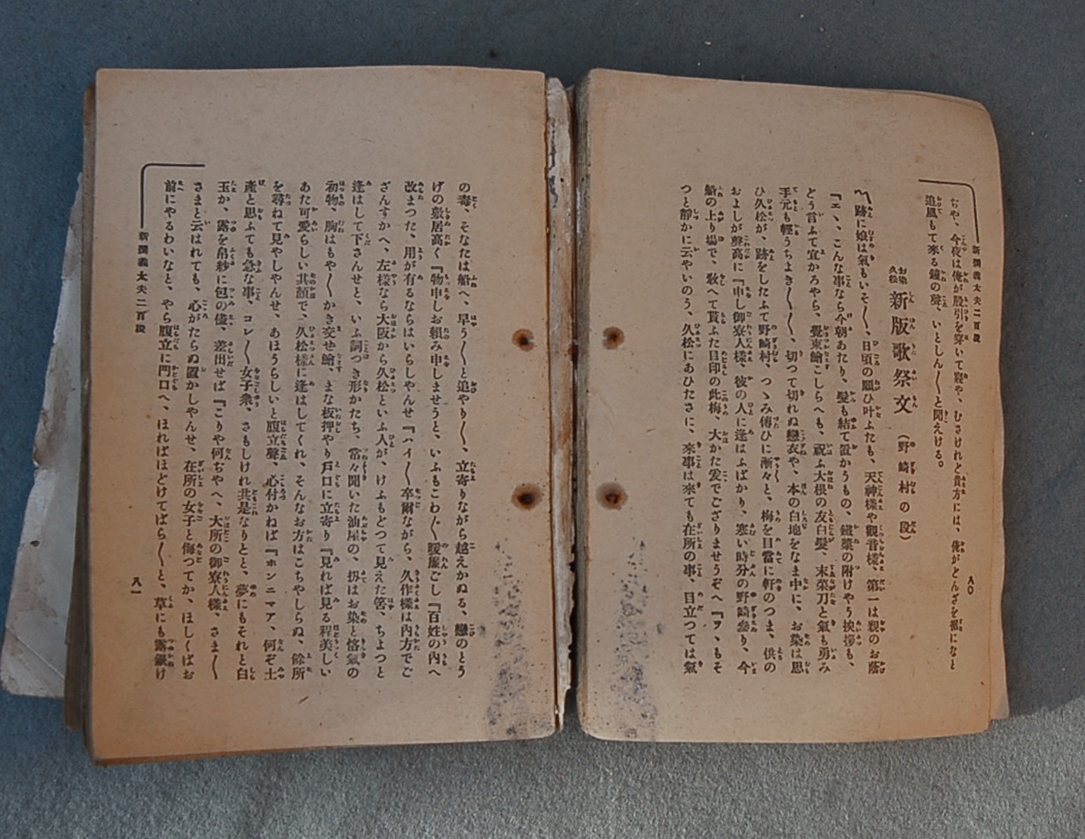 新撰義太夫二百段
八〇
ぢや、今夜は俺が股引を穿いて寝や、ひさけれど貴方には、俺がどんざを掛になと
追風もて來る鐘の聲、いとしん〳〵と聞えける。
お染
久松
新版歌祭文
(野崎村の段)
〽跡に娘は氣もいそ〳〵、日頃の願ひ叶ふたも、天神樣や觀音樣、第一は親のお蔭
『エヽ、こんな事なら今朝あたり、髮も結て置かうもの、鐵漿の附けやう挨拶も、
どう言ふて宜かろやら、覺束鱠こしらへも、祝ふ大根の友白髮、末菜刀と氣も勇み
手元も輕うちよき〳〵〳〵、切つて切れぬ戀衣や、本の白地をなま中に、お染は思
ひ久松が、跡をしたふて野崎村、つゝみ傳ひに漸々と、梅を目當に軒のつま、供の
およしが聲高に『申し御寮人樣、彼の人に逢はふばかり、寒い時分の野崎參り、今
船の上り場で、敎へて貰ふた目印の此梅、大かた爰でござりませうぞへ『ヲヽもそ
つと靜かに云やいのう、久松にあひたさに、來事は來ても在所の事、目立つては氣
の毒、そなたは船へ、早う〳〵と追やり〳〵、立寄りながら越えかぬる、戀のとう
げの敷居高く『物申しお頼み申しませうと、いふもこわ〴〵暖簾ごし『百姓の内へ
改まつた、用が有るならはいらしやんせ『ハイ〳〵卒爾ながら、久作樣は内方でご
ざんすかへ、左樣なら大阪から久松といふ人が、けふもどつて見えた筈、ちよつと
逢はして下さんせと、いふ詞つき形かたち、常々聞いた油屋の、扨はお染と悋氣の
初物、胸はもや〳〵かき交せ鱠、まな板押やり戸口に立寄り『見れば見る程美しい
あた可愛らしい其顔で、久松樣に逢はしてくれ、そんなお方はこちやしらぬ、餘所
を尋ねて見やしやんせ、あほうらしいと腹立聲、心付かねば『ホンニマア、何ぞ土
產と思ふても急な事、コレ〳〵女子衆、さもしけれ共是なりとと、夢にもそれと白
玉か、露を帛紗に包の儘、差出せば『こりや何ぢやへ、大所の御寮人樣、さま〴〵
さまと云はれても、心がたらぬ置かしやんせ、在所の女子と侮つてか、ほしくばお
前にやるわいなと、やら腹立に門口へ、ほればほどけてばら〳〵と、草にも露銀け
新撰義太夫二百段
八一